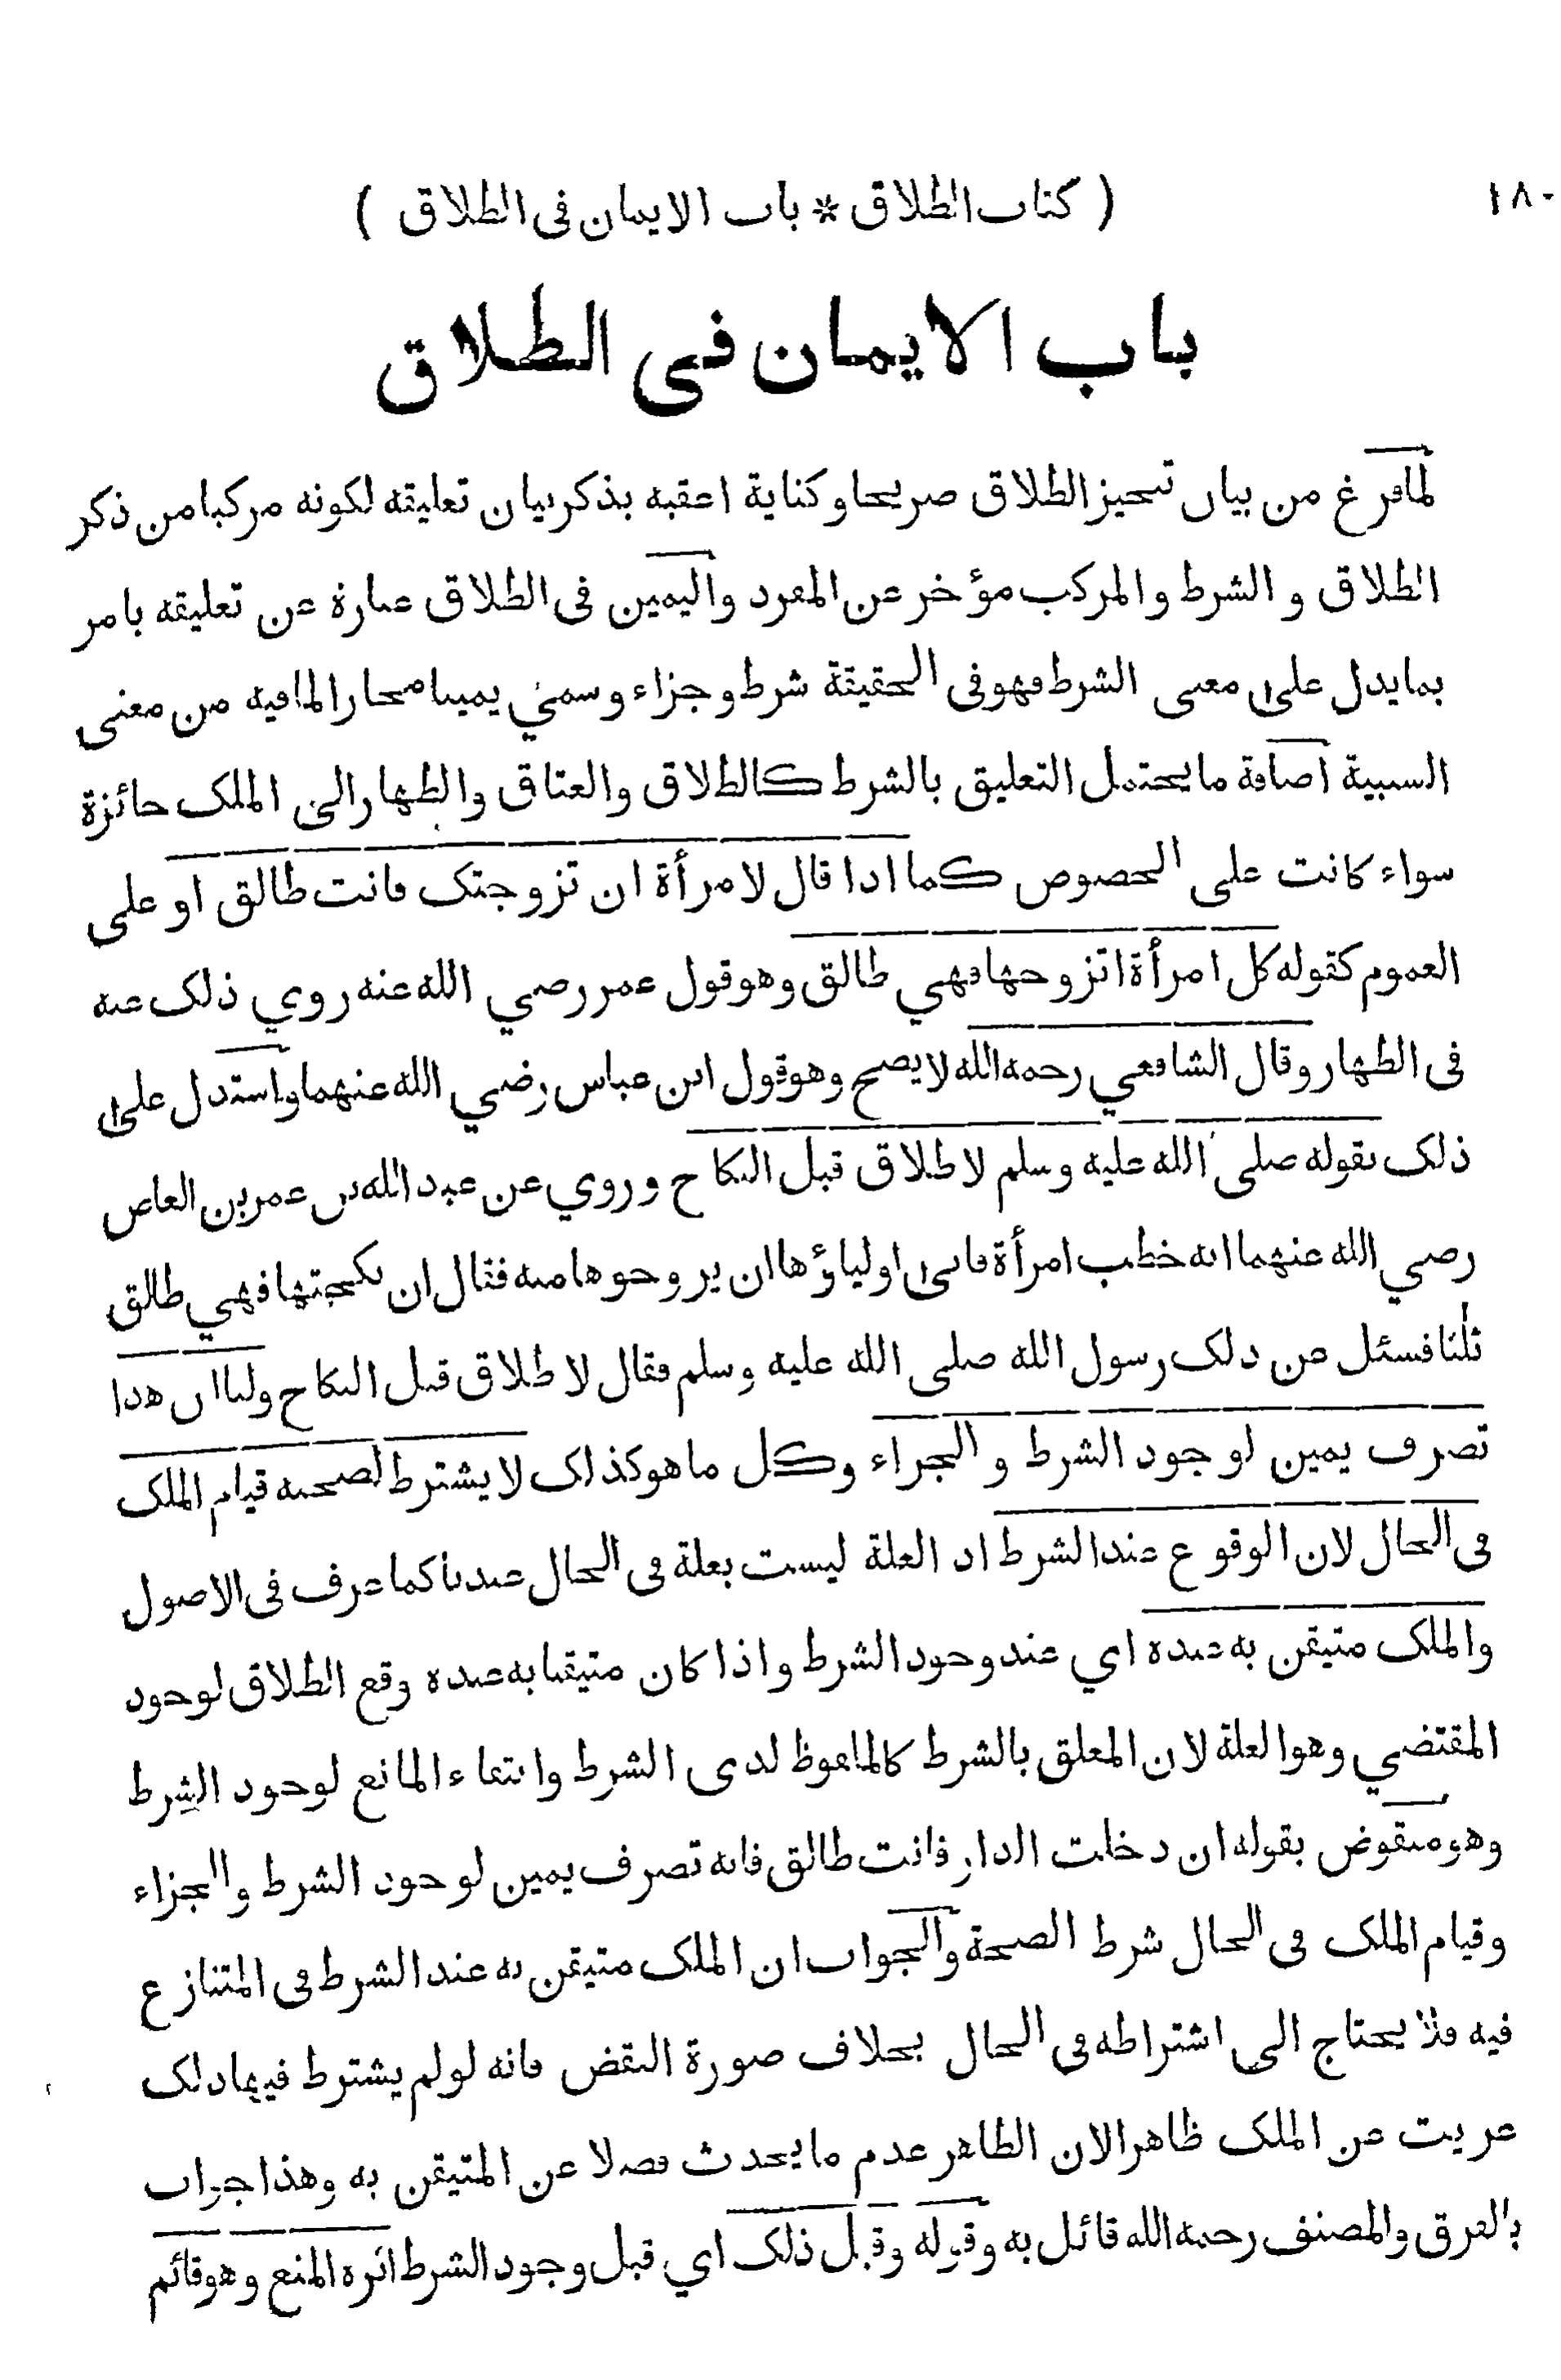 ( كتاب الطلاق * باب الايمان في الطلاق ) ١٨٠
باب الايمان في الطلاق
لما فرغ من بيان تنجيز الطلاق صريحا وكناية اعقبه بذكر بيان تعليقه لكونه مركبا من ذكر
الطلاق و الشرط و المركب مؤخر عن المفرد واليمين في الطلاق عبارة عن تعليقه بامر
بما يدل على معنى الشرط فهو في الحقيقة شرط و جزاء و سمي يمينا مجازا لما فيه من معنى
السببية اضافة ما يحتمل التعليق بالشرط كالطلاق والعتاق والظهار الى الملك جائزة
سواء كانت على الخصوص كما اذا قال لامرأة ان تزوجتك فانت طالق او على
العموم كقوله كل امرأة اتزوجها فهي طالق وهو قول عمر رضي الله عنه روي ذلك عنه
في الظهار وقال الشافعي رحمه الله لا يصح وهو قول ابن عباس رضي الله عنهما واستدل على
ذلك بقوله صلى الله عليه وسلم لا طلاق قبل النكاح و روي عن عبد الله بن عمر بن العاص
رضي الله عنهما انه خطب امرأة فابى اولياؤها ان يزوجوها منه فقال ان نكحتها فهي طالق
ثلثا فسئل عن ذلك رسول الله صلى الله عليه وسلم فقال لا طلاق قبل النكاح ولنا ان هذا
تصرف يمين لوجود الشرط و الجزاء وكل ما هو كذلك لا يشترط لصحته قيام الملك
في الحال لان الوقوع عند الشرط اذ العلة ليست بعلة في الحال عندنا كما عرف في الاصول
والملك متيقن به عنده اي عند وجود الشرط و اذا كان متيقنا به عنده وقع الطلاق لوجود
المقتضي وهو العلة لان المعلق بالشرط كالملفوظ لدى الشرط وانتفاء المانع لوجود الشرط
وهو منقوض بقوله ان دخلت الدار فانت طالق فانه تصرف يمين لوجود الشرط والجزاء
وقيام الملك في الحال شرط الصحة والجواب ان الملك متيقن به عند الشرط في المتنازع
فيه فلا يحتاج الى اشتراطه في الحال بخلاف صورة النقض فانه لو لم يشترط فيها ذلك
عريت عن الملك ظاهرا لان الظاهر عدم ما يحدث فضلا عن المتيقن به وهذا جواب
بالفرق والمصنف رحمه الله قائل به وقوله وقبل ذلك اي قبل وجود الشرط اثره المنع وهو قائم